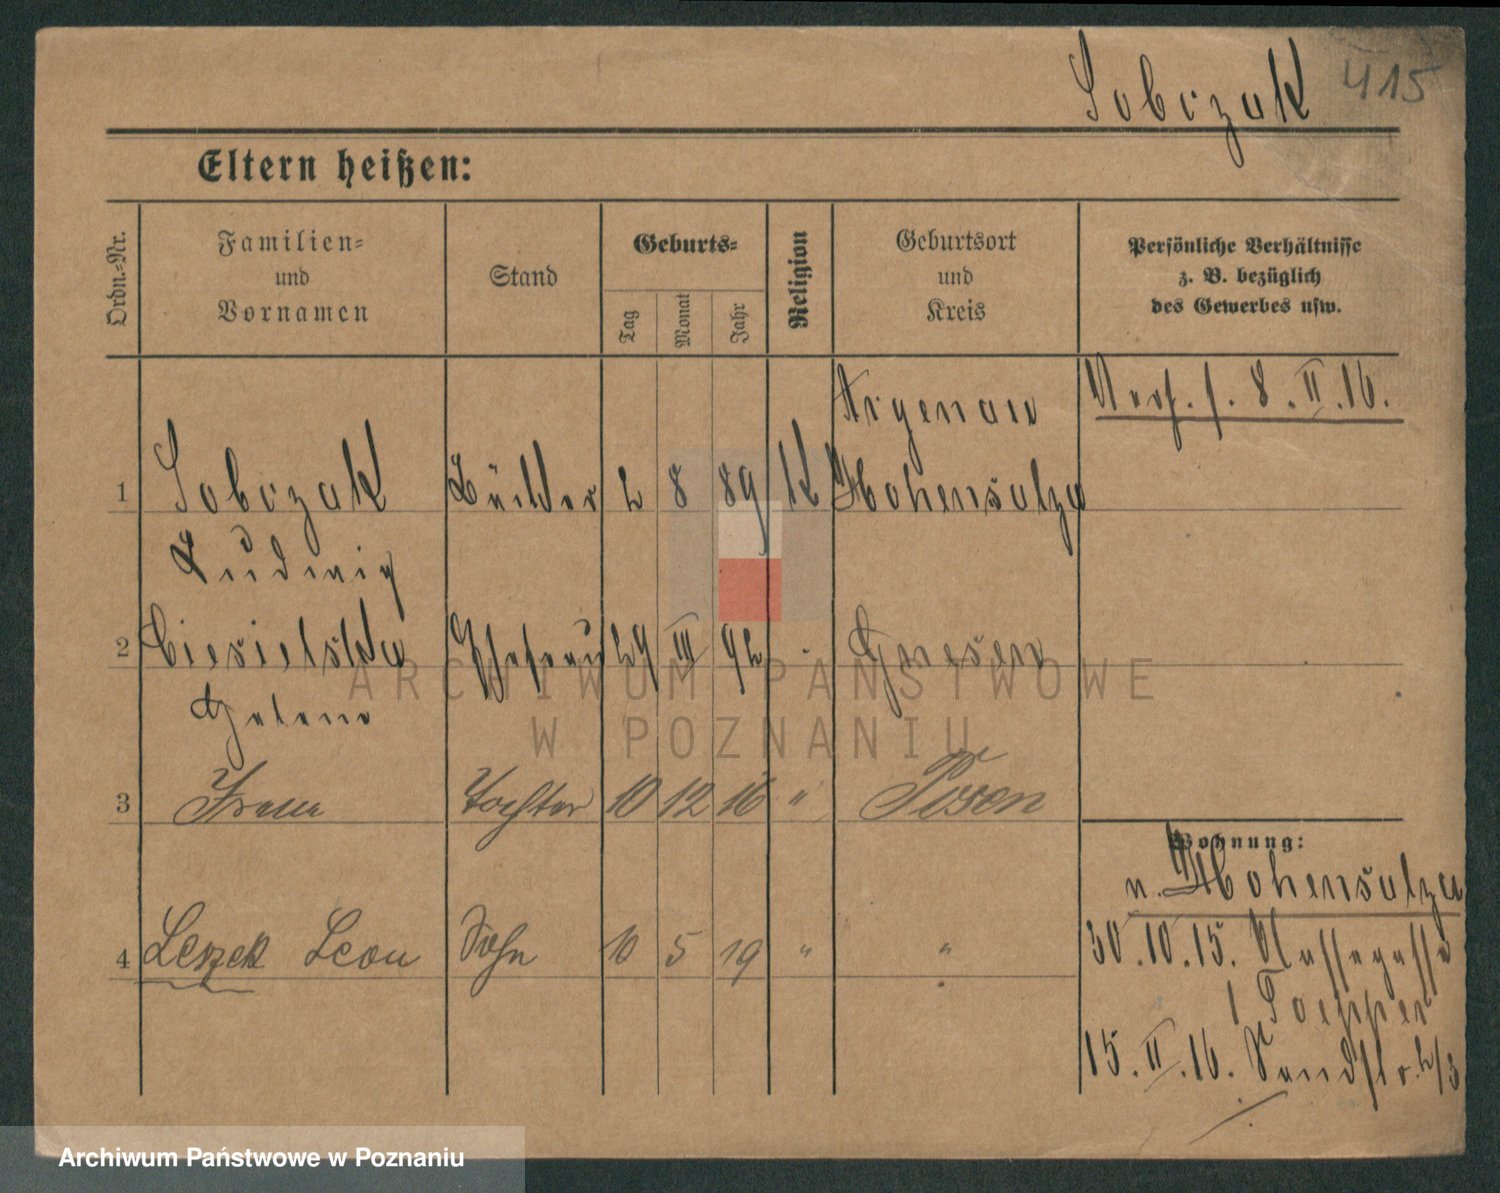 Sobczak 415
Eltern heißen:
Ordn.-Nr.
Familien-
und
Vornamen
Stand
Geburts-
Tag
Monat
Jahr
Religion
Geburtsort
und
Kreis
Persönliche Verhältnisse
z. B. bezüglich
des Gewerbes usw.
Argenau
8. II. 16.
1 Sobczak 2 8 89 K Hohensalza
Ludwig
2 Ciesielska Ehefrau 29 III 92 " Gnesen
Helene
3 Irena Tochter 10 12 16 " Posen
Wohnung:
v. Hohensalza
4 Leszek Leon Sohn 10 5 19 " "
30.10.15. Nassegasse
1 Toepper
15. II. 16. Sandstr. 2/3
ARCHIWUM PAŃSTWOWE
W POZNANIU
Archiwum Państwowe w Poznaniu